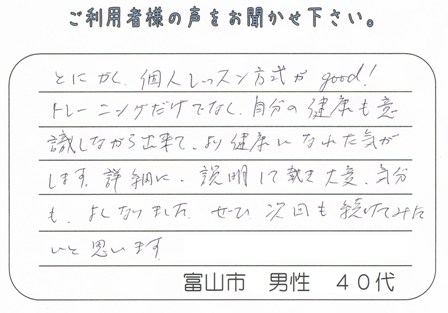 ご利用者様の声をお聞かせ下さい。
とにかく、個人レッスン方式が good!
トレーニングだけでなく、自分の健康も意
識しながら出来て、より健康になれた気が
します。詳細に、説明して頂き大変、気分
も、よくなりました。ぜひ次回も続けてみた
いと思います
富山市 男性 40代